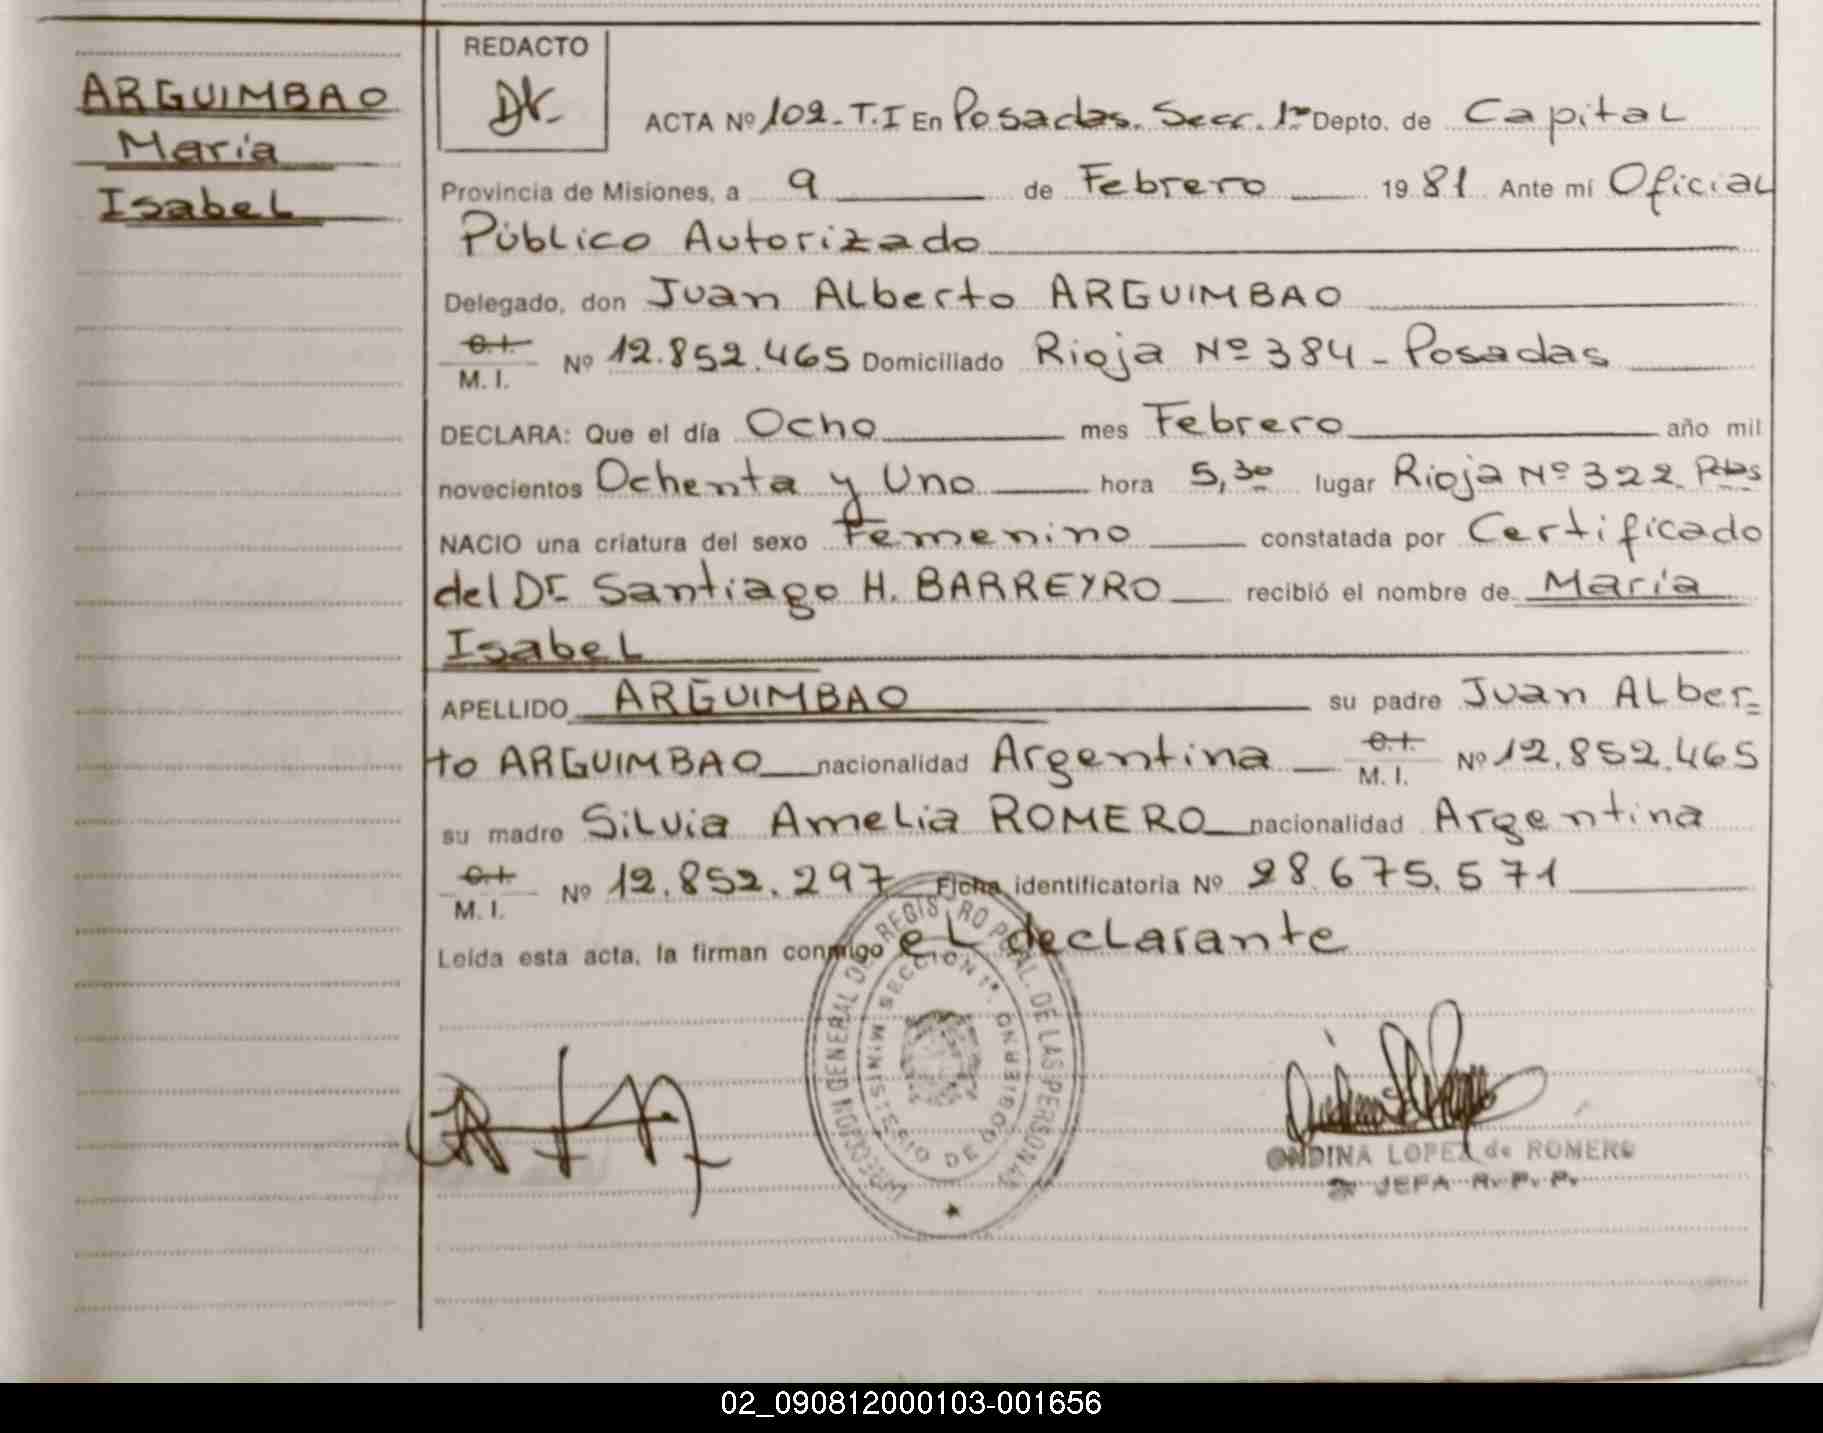 ARGUIMBAO
María
Isabel
REDACTO
ACTA Nº 102. T.I En Posadas. Secc. 1ª Depto. de Capital
Provincia de Misiones, a 9 de Febrero 19 81 Ante mí Oficial
Público Autorizado
Delegado, don Juan Alberto ARGUIMBAO
C.I.
M. I. Nº 12.852.465 Domiciliado Rioja Nº 384 - Posadas
DECLARA: Que el día Ocho mes Febrero año mil
novecientos Ochenta y Uno hora 5,30 lugar Rioja Nº 322. Pdas
NACIO una criatura del sexo Femenino constatada por Certificado
del Dr. Santiago H. BARREYRO recibió el nombre de María
Isabel
APELLIDO ARGUIMBAO su padre Juan Alber=
to ARGUIMBAO nacionalidad Argentina C.I. M. I. Nº 12.852.465
su madre Silvia Amelia ROMERO nacionalidad Argentina
C.I.
M. I. Nº 12.852.297 Ficha identificatoria Nº 28.675.571
Leída esta acta, la firman conmigo el declarante
DIRECCION GENERAL DEL REGISTRO PCIAL. DE LAS PERSONAS
SECCION 1ª. MINISTERIO DE GOBIERNO
ONDINA LOPEZ de ROMERO
JEFA R. P. P.
02_090812000103-001656